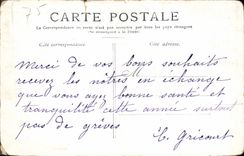 75
CARTE POSTALE
La Correspondance au recto n'est pas acceptée par tous les pays étrangers
(Se renseigner à la Poste)
Côté correspondance. Côté adresse.
Merci de vos bons souhaits
recevez les nôtres en échange
que vous ayez bonne santé et
tranquilité cette année surtout
pas de grèves
E. Gricourt